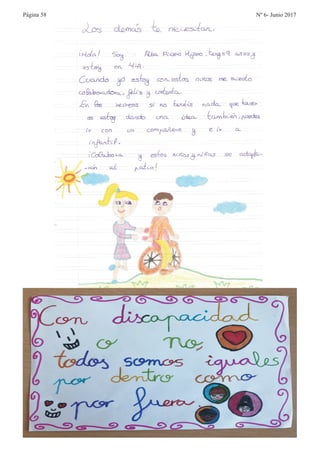 Página 58
Nº 6- Junio 2017
Los demás te necesitan.
¡Hola! Soy Alba Pizarro Hijono, tengo 9 años y
estoy en 4ºA.
Cuando yo estoy con estos niños me siento
colaboradora, feliz y contenta.
En los recreos si no tenéis nada que hacer
os estoy dando una idea también, puedes
ir con un compañero y e ir a
infantil.
¡Colabora y estos niños y niñas se adapta-
rán al patio!
Con discapacidad
o no,
todos somos iguales
por dentro como
por fuera